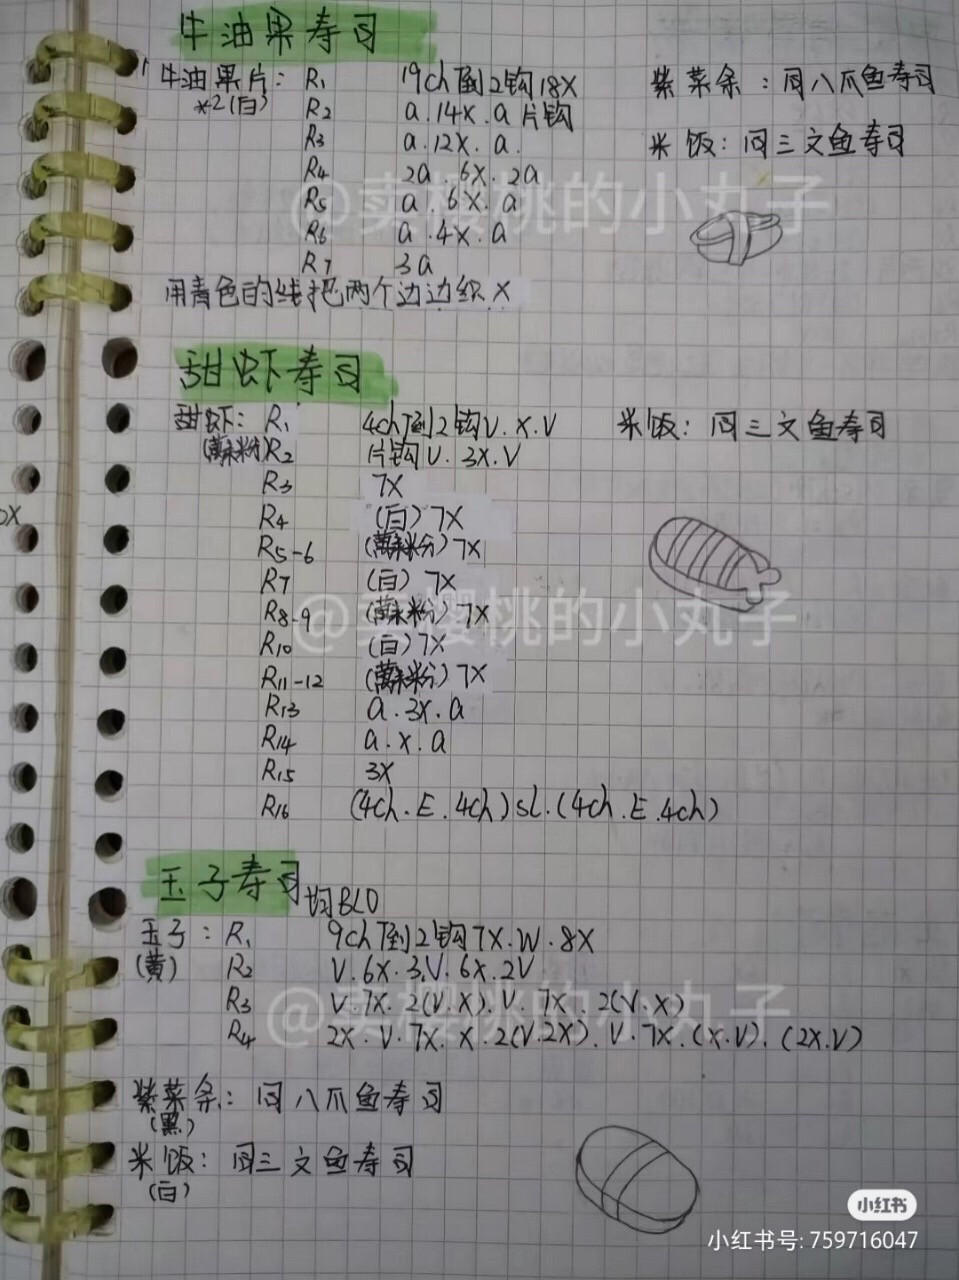 牛油果寿司
牛油果片: R1 19ch倒2钩18X
*2(白) R2 a.14X.a 片钩
R3 a.12X.a.
R4 2a.6X.2a
R5 a.6X.a
R6 a.4X.a
R7 3a
用青色的线把两个边边织X
紫菜条:同八爪鱼寿司
米饭:同三文鱼寿司
甜虾寿司
甜虾: R1 4ch倒2钩V.X.V
R2 片钩V.3X.V
R3 7X
R4 (白)7X
R5-6 7X
R7 (白)7X
R8-9 7X
R10 (白)7X
R11-12 7X
R13 a.3X.a
R14 a.X.a
R15 3X
R16 (4ch.E.4ch)sl.(4ch.E.4ch)
米饭:同三文鱼寿司
0X
玉子寿司 均BLO
玉子: R1 9ch倒2钩7X.W.8X
(黄) R2 V.6X.3V.6X.2V
R3 V.7X.2(V.X).V.7X.2(V.X)
R4 2X.V.7X.X.2(V.2X).V.7X.(X.V).(2X.V)
紫菜条:同八爪鱼寿司
(黑)
米饭:同三文鱼寿司
(白)
@卖樱桃的小丸子
@卖樱桃的小丸子
@卖樱桃的小丸子
小红书
小红书号: 759716047